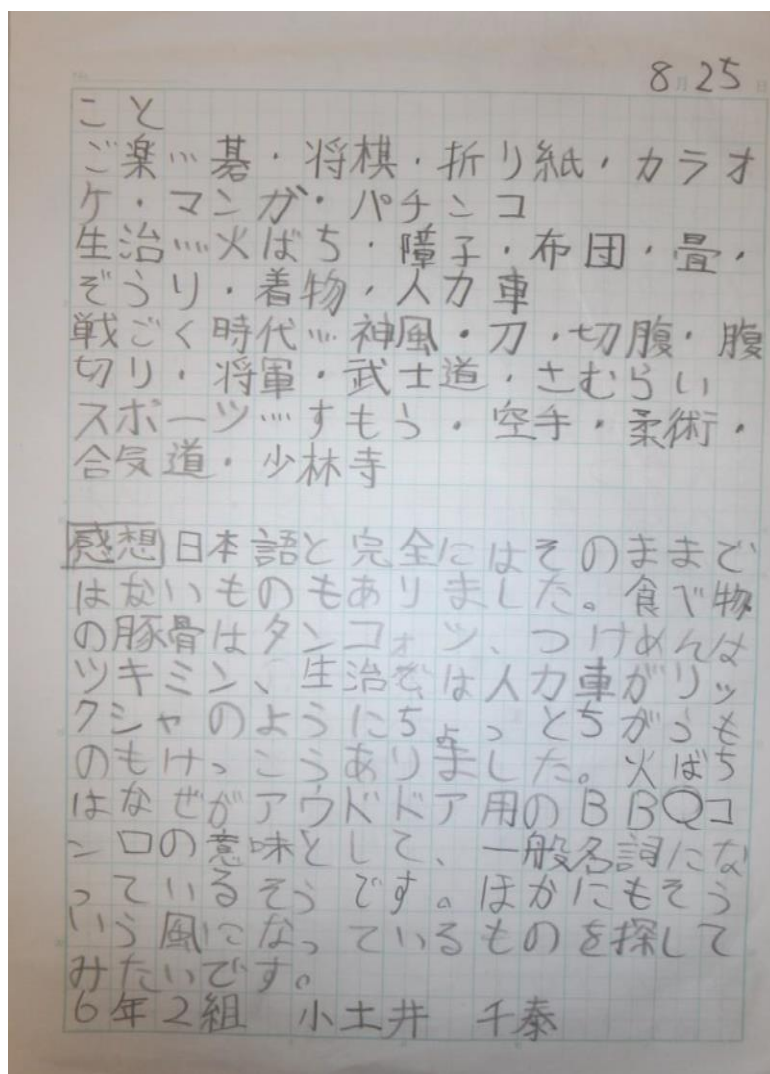 8月25日
こと
ご楽…碁・将棋・折り紙・カラオ
ケ・マンガ・パチンコ
生治…火ばち・障子・布団・畳・
ぞうり・着物・人力車
戦ごく時代…神風・刀・切腹・腹
切り・将軍・武士道・さむらい
スポーツ…すもう・空手・柔術・
合気道・少林寺
感想日本語と完全にはそのままで
はないものもありました。食べ物
の豚骨はタンコォツ、つけめんは
ツキミン、生治では人力車がリッ
クシャのようにちょっとちがうも
のもけっこうありました。火ばち
はなぜがアウドドア用のBBQコ
ンロの意味として、一般名詞にな
っているそうです。ほかにもそう
いう風になっているものを探して
みたいです。
6年2組 小土井 千泰